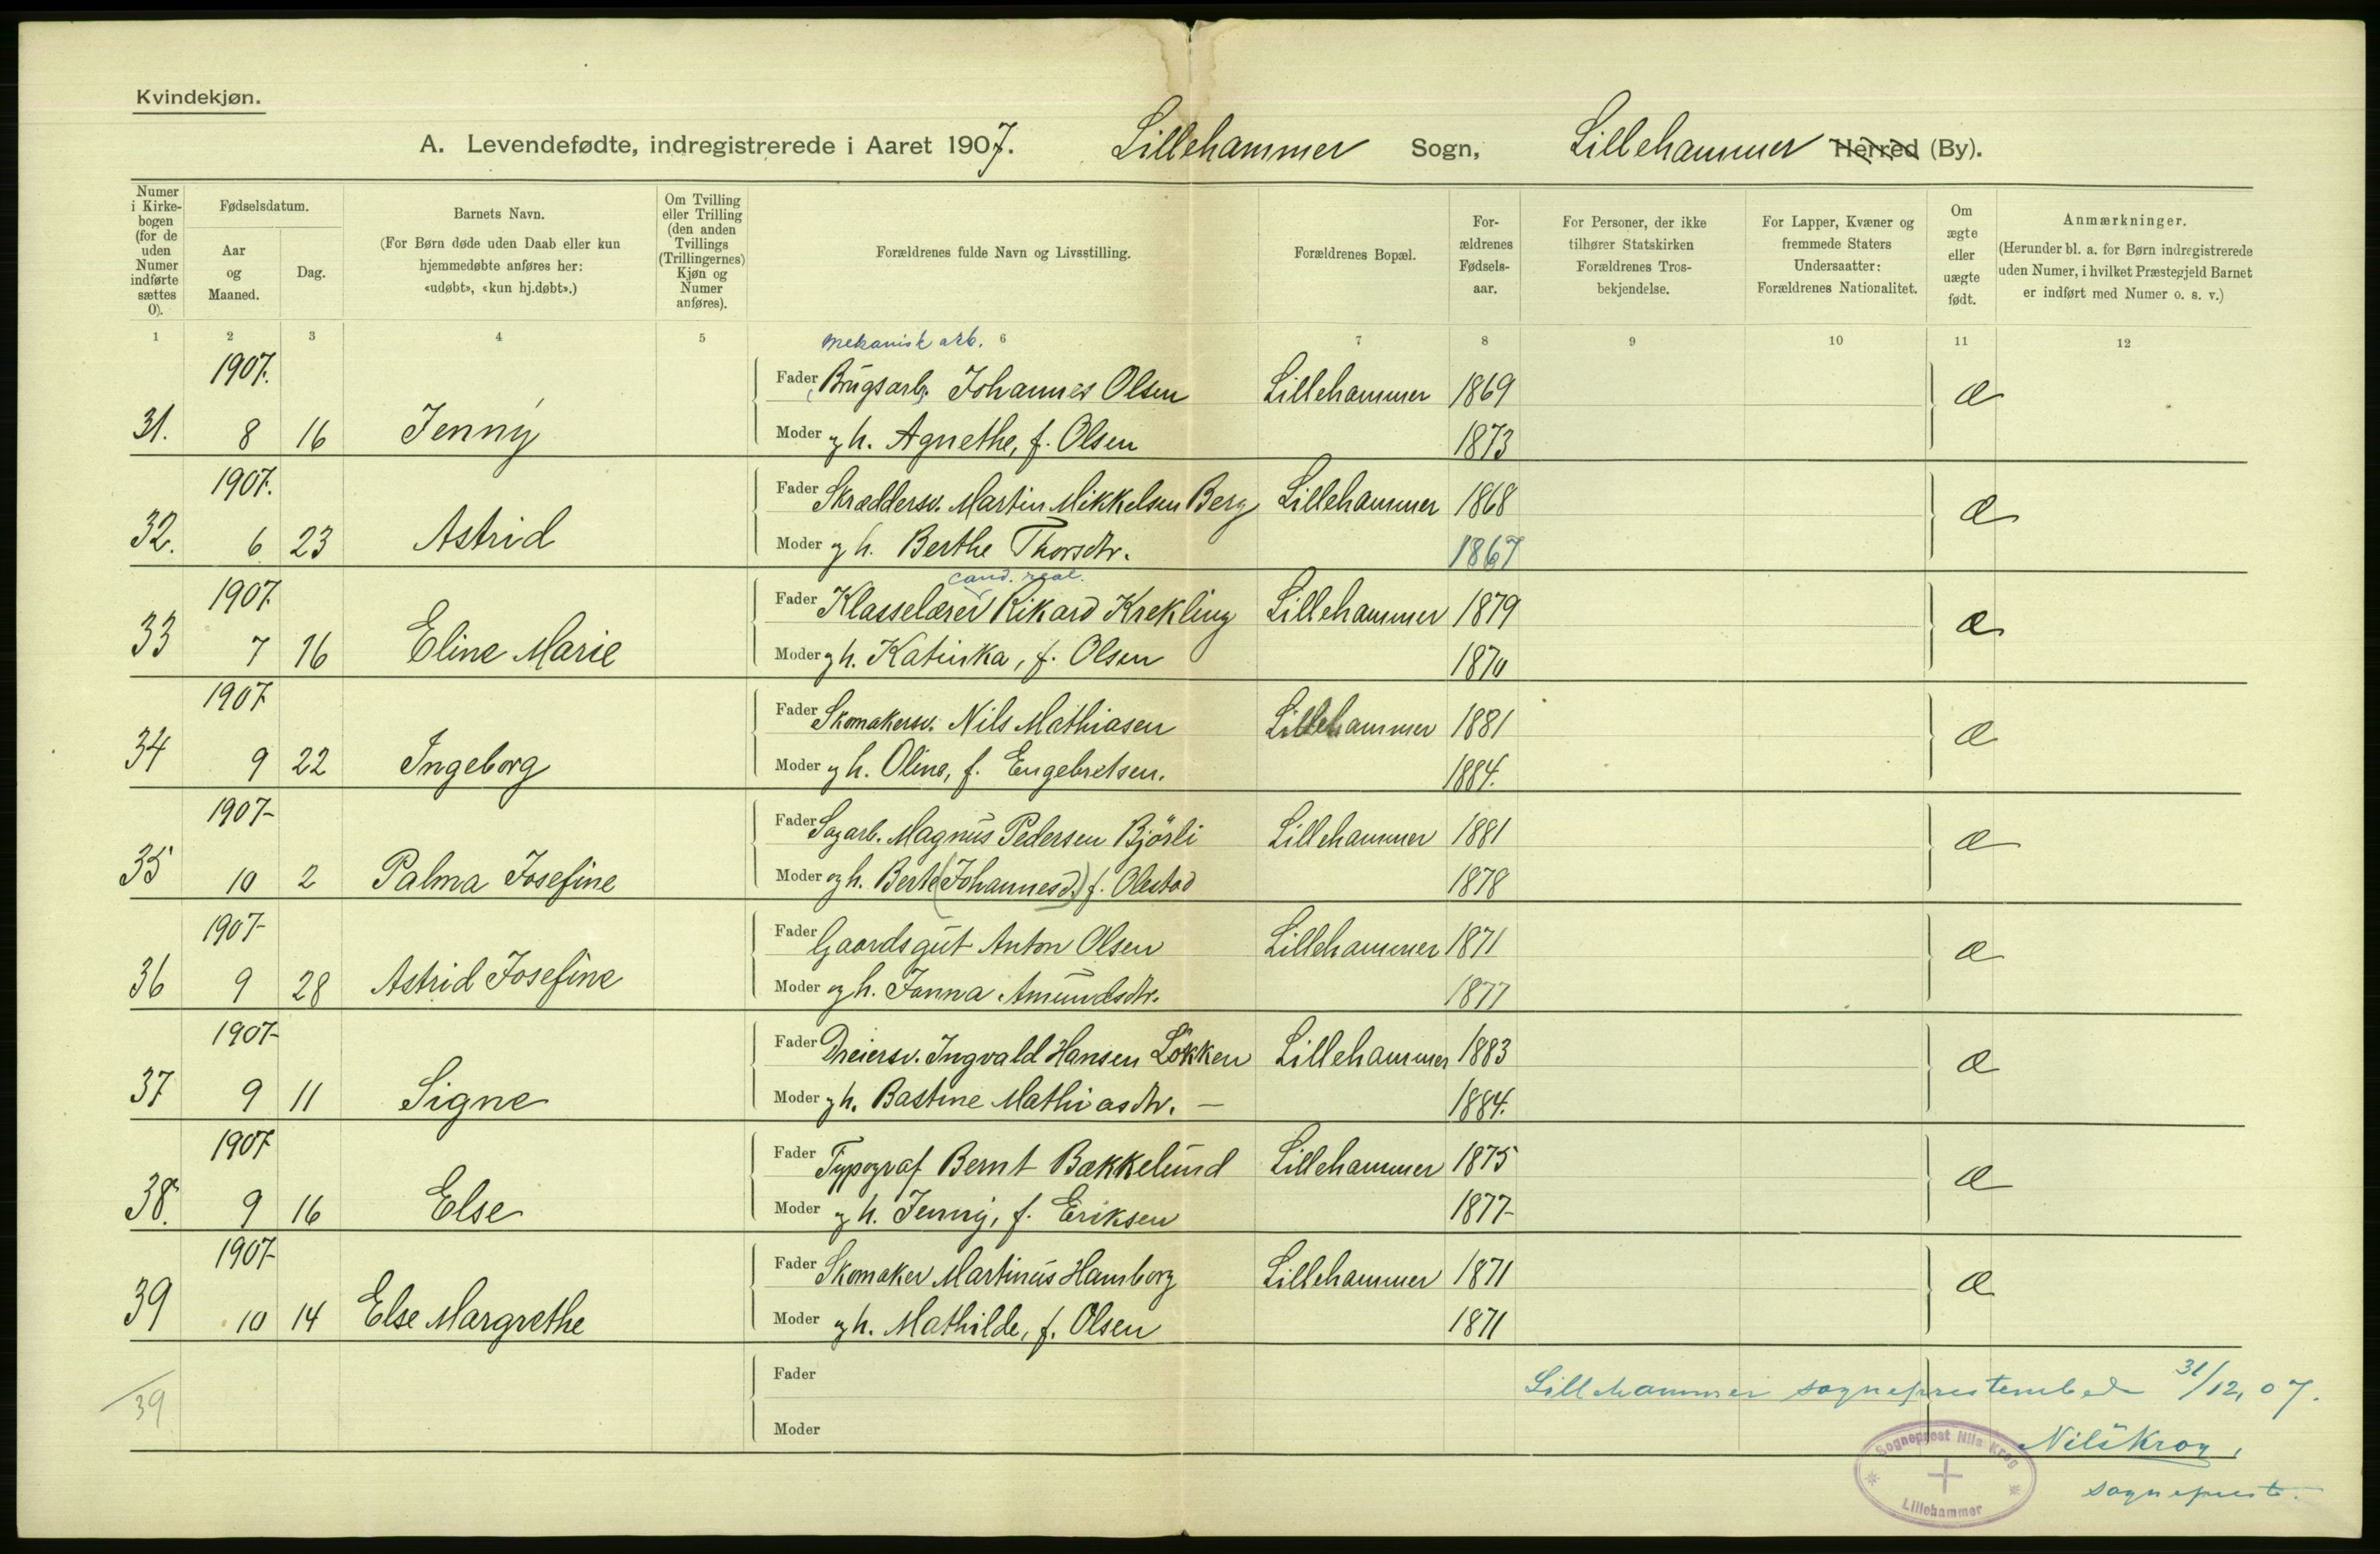 Kvindekjøn.
A. Levendefødte, indregistrerede i Aaret 1907. Lillehammer Sogn, Lillehammer Herred (By).
Numer i Kirkebogen (for de uden Numer indførte sættes 0).
Fødselsdatum.
Aar og Maaned.
Dag.
Barnets Navn.
(For Børn døde uden Daab eller kun hjemmedøbte anføres her: «udøbt», «kun hj.døbt».)
Om Tvilling eller Trilling (den anden Tvillings (Trillingernes) Kjøn og Numer anføres).
Forældrenes fulde Navn og Livsstilling.
Forældrenes Bopæl.
For-ældrenes Fødsels-aar.
For Personer, der ikke tilhører Statskirken Forældrenes Tros-bekjendelse.
For Lapper, Kvæner og fremmede Staters Undersaatter: Forældrenes Nationalitet.
Om ægte eller uægte født.
Anmærkninger.
(Herunder bl. a. for Børn indregistrerede uden Numer, i hvilket Præstegjeld Barnet er indført med Numer o. s. v.)
1 2 3 4 5 6 7 8 9 10 11 12
mekanisk arb.
1907. Fader (Brugsarb.) Johannes Olsen Lillehammer 1869 æ
31. 8 16 Jenny Moder og h. Agnethe, f. Olsen 1873
1907. Fader Skræddersv. Martin Mikkelsen Berg Lillehammer 1868 æ
32. 6 23 Astrid Moder og h. Berthe Thorsdtr. 1867
cand. real.
1907 Fader Klasselærer Rikard Krekling Lillehammer 1879 æ
33 7 16 Eline Marie Moder og h. Katinka, f. Olsen 1870
1907 Fader Skomakersv. Nils Mathiasen Lillehammer 1881 æ
34 9 22 Ingeborg Moder og h. Oline, f. Engebretsen. 1884.
1907- Fader Sagarb. Magnus Pedersen Bjørli Lillehammer 1881 æ
35 10 2 Palma Josefine Moder og h. Berte (Johannesd.) f. Olestad 1878
1907- Fader Gaardsgut Anton Olsen Lillehammer 1871 æ
36 9 28 Astrid Josefine Moder og h. Janna Amundsdtr. 1877
1907- Fader Dreiersv. Ingvald Hansen Løkken Lillehammer 1883 æ
37 9 11 Signe Moder og h. Bastine Mathiasdtr. — 1884.
1907 Fader Typograf Bernt Bækkelund Lillehammer 1875 æ
38. 9 16 Else Moder og h. Jenny, f. Eriksen 1877-
1907- Fader Skomaker Martinus Hamborg Lillehammer 1871 æ
39 10 14 Else Margrethe Moder og h. Mathilde, f. Olsen 1871
39 Fader
Moder
Lillehammer sogneprestembede 31/12, 07.
Nils Krog,
sogneprest.
Sogneprest Nils Krog
Lillehammer